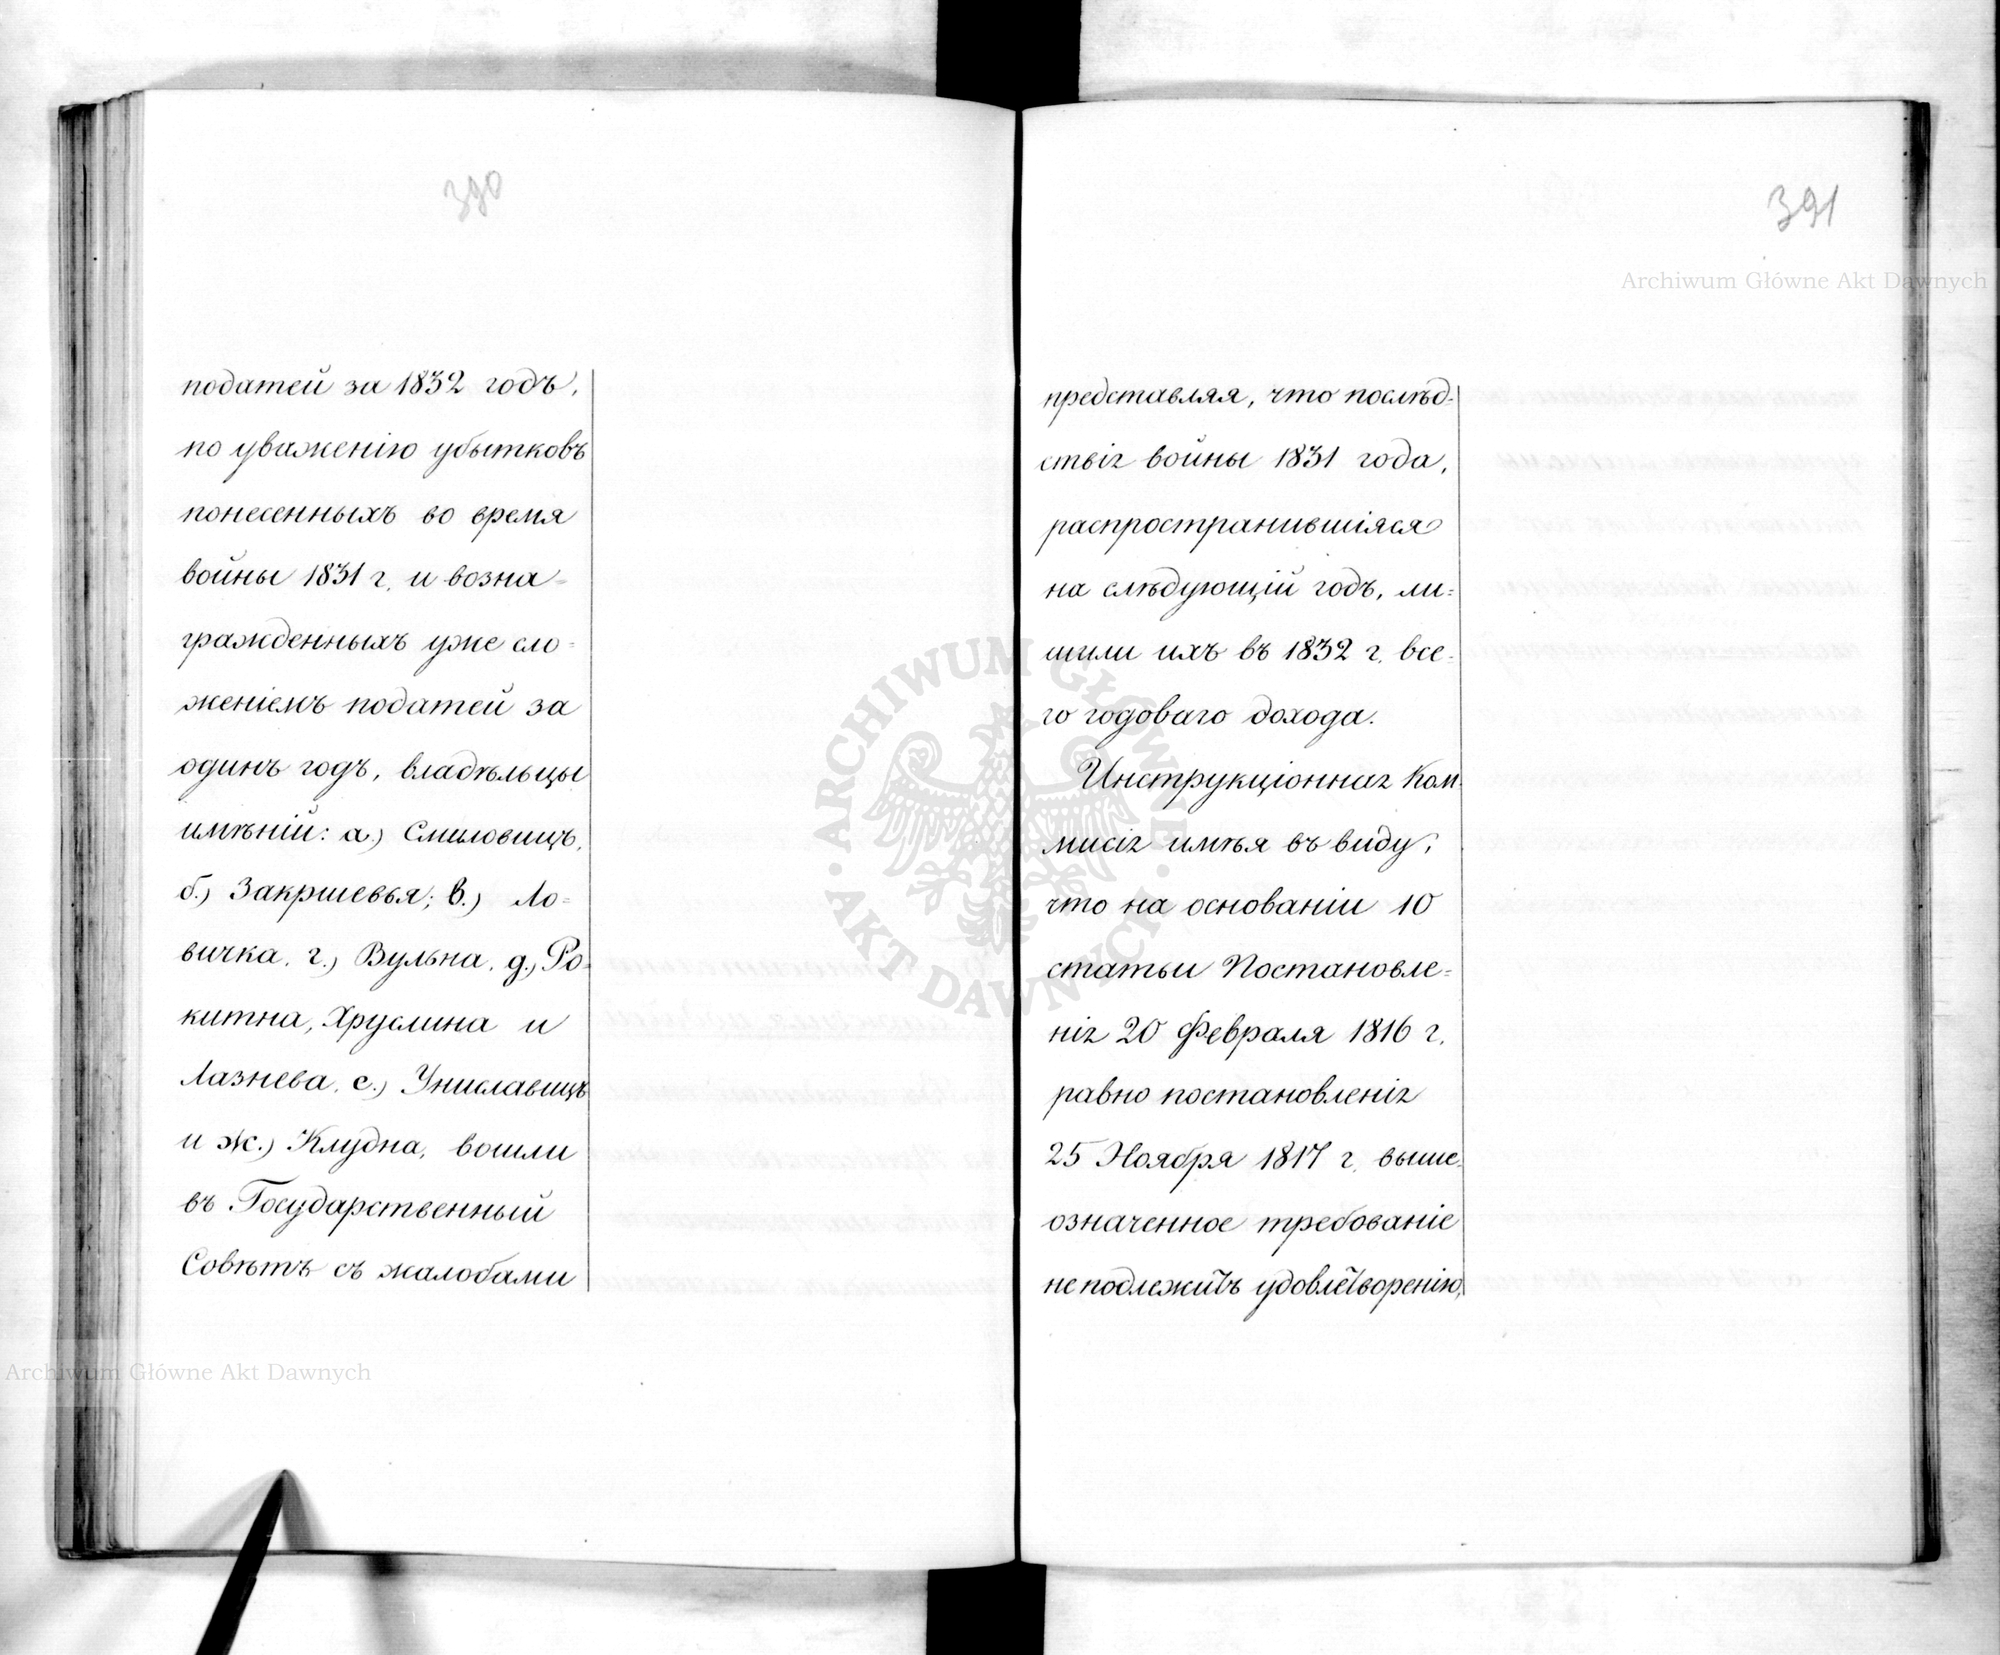 390
податей за 1832 годъ,
по уваженію убытковъ
понесенныхъ во время
войны 1831 г. и возна=
гражденныхъ уже сло=
женіемъ податей за
одинъ годъ, владѣльцы
имѣній: а.) Смиловицъ,
б.) Закршевья; в.) Ло=
вичка, г.) Вульна, д.) Ро=
китна, Хруслина и
Лазнева, е.) Униславицъ
и ж.) Клудна, вошли
въ Государственный
Совѣтъ съ жалобами
391
Archiwum Główne Akt Dawnych
представляя, что послѣд=
ствія войны 1831 года,
распространившіяся
на слѣдующій годъ, ли=
шили ихъ въ 1832 г. все=
го годоваго дохода.
Инструкціонная Ком=
мисія имѣя въ виду,
что на основаніи 10
статьи Постановле=
нія 20 Февраля 1816 г.
равно постановленія
25 Ноября 1817 г. выше=
означенное требованіе
не подлежитъ удовлетворенію,
ARCHIWUM GŁÓWNE AKT DAWNYCH
Archiwum Główne Akt Dawnych